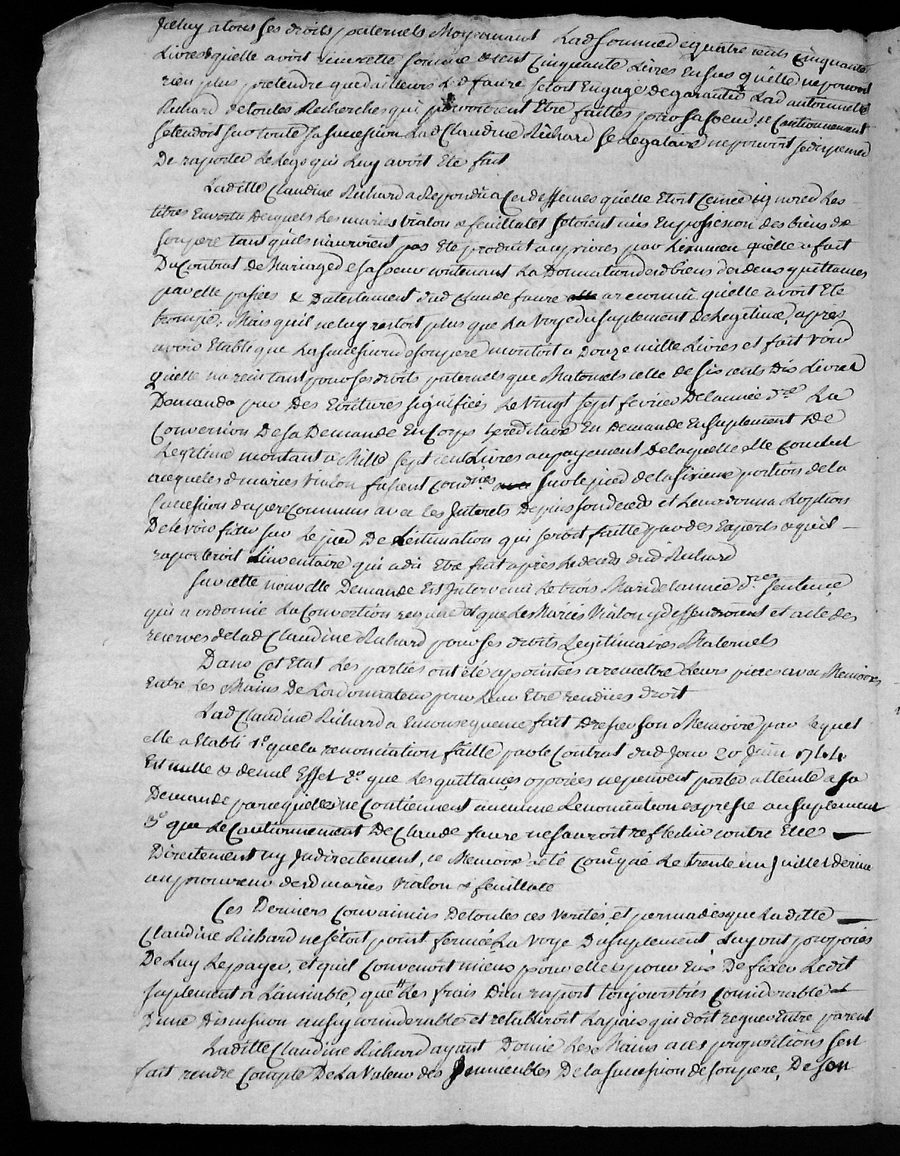 Iceluy a tous ses droits paternels Moyennant Lad somme de quatre cents Cinquante
Livres quelle avoit Receu cette somme de cent Cinquante Livres En sus quelle ne pouvoit
rien plus pretendre que d'ailleurs Led faure setoit Engagé de garantir Lad antoinette
Richard de toutes Recherches qui pourroient Etre faittes par sa soeur, ce Cautionnement
setendoit sur toute sa succession Lad Claudine Richard sa legataire ne pouvoit se dispenser
De raporter Le legs qui Luy avoit Eté fait
Laditte Claudine Richard a Repondu a Ces deffenses quelle Etoit Censée ignorer Les
titres En vertu Desquels Les mariés vialon & feuillatet setoient mis En possession des biens de
son pere tant quils n'auroient pas Eté produit au procés par L'examen quelle a fait
Du Contrat de Mariage de sa soeur contenant La Donnation desd biens des deux quittances
par elle passées & Du testament dud Claude faure a reconnu quelle avoit Eté
trompé, Mais quil ne luy restoit plus que La voye du suplement de Legitime, apres
avoir Etabli que La succession de son pere montoit a Douze mille Livres et fait voir
quelle na reçu tant pour ses droits paternels que Maternels celle de six cents dix Livres
Demanda par Des Ecritures signifiées Le vingt sept fevrier De lannée dre La
Convertion De sa Demande En Corps hereditaire En demande En suplement De
Legitime montant a Mille sept cent Livres au payement de laquelle Elle Conclut
a ce que lesd mariés vialon fussent Condnés sur le pied de la sixieme portion de la
succession du pere Commun avec les Interets Depuis son deceds et Leur donna Loption
De le voir fixer sur Le pied De Lestimation qui seroit faitte par des Experts & quil
raporteroit L'inventaire qui a du Etre fait apres le deceds dud Richard
Sur cette nouvelle Demande Est Intervenu Le trois Mai de lannée dre sentence
qui a ordonné La Convertion requise et que Les Mariés Vialon y deffendroient et acte des
reserves de lad Claudine Richard pour ses droits Legitimaires Maternels
Dans Cet Etat Les parties ont été apointées a remettre Leurs pieces avec Memoires
Entre Les Mains De Lordonnateur pour Leur Etre rendues droit
Lad Claudine Richard a En consequence fait Dresser son Memoire par lequel
elle a Etabli 1o que la renonciation faitte par le Contrat dud Jour 20 Juin 1744
Est nulle & de nul Effet 2o que Les quittances oposées ne peuvent porter atteinte a sa
Demande parce quelles ne Contiennent aucune Renonciation expresse au suplement
3o que Le Cautionnement De Claude faure ne sauroit reflechir contre Elle
Directement ny Indirectement, ce Memoire a eté Comqué Le trente un Juillet dernier
au procureur desd mariés vialon & feuillate
Ces Derniers Convaincus De toutes ces verités, et persuadés que Laditte
Claudine Richard ne sétoit point fermée La voye Du suplement, Luy ont proposés
De Luy Le payer, et quil Convenoit mieux pour elle & pour Eux De fixer Ledit
suplement a L'amiable, que Les frais D'un raport toujours trés Considerable et
D'une Discussion aussy considerable et retabliroit La paix qui doit regner Entre parent
Laditte Claudine Richard ayant Donné Les Mains a ces propositions sest
fait rendre Compte De La Valeur des Immeubles De la succession de son pere, De son